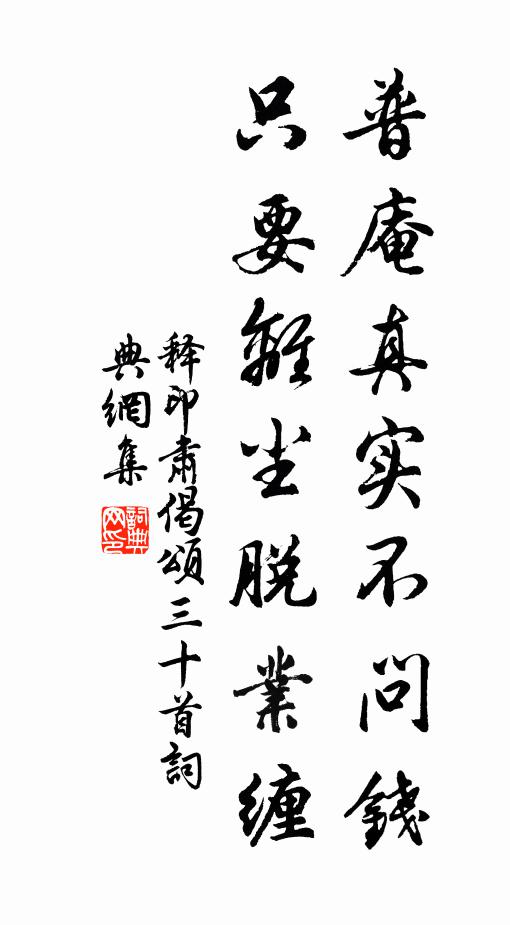 普庵真实不问錢
只要離尘脱業缠
释印肃偈頌三十首詞
典網集
詞典
网印